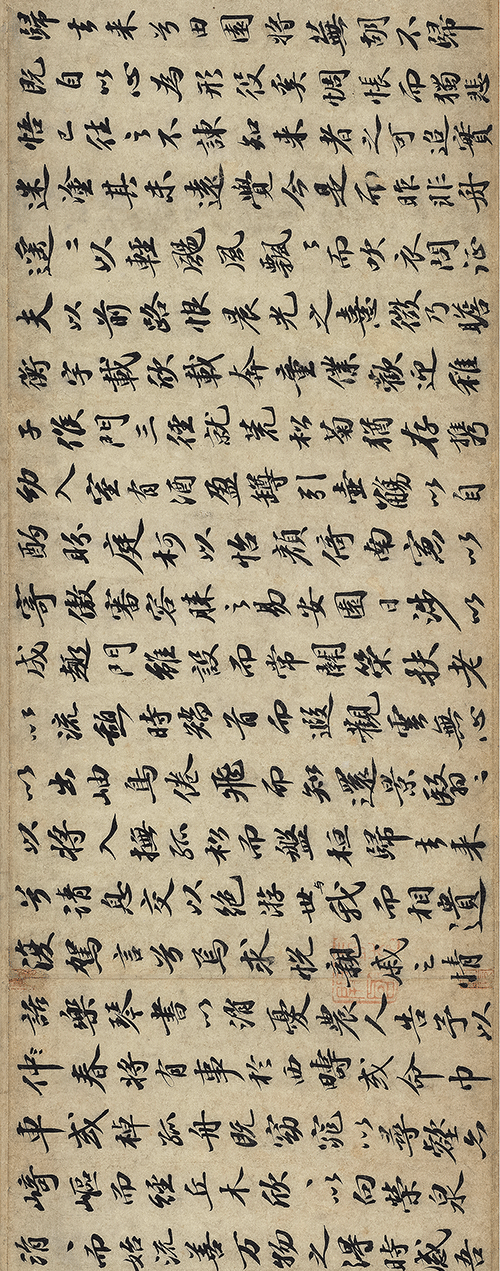 歸去来兮田園将蕪胡不歸
既自以心為形役奚惆悵而獨悲
悟已往之不諫知来者之可追實
迷塗其未遠覺今是而昨非舟
遥〻以輕颺風飄〻而吹衣問征
夫以前路恨晨光之熹微乃瞻
衡宇載欣載奔童僕歡迎稚
子候門三徑就荒松菊猶存携
幼入室有酒盈罇引壺觴以自
酌眄庭柯以怡顏倚南窗以
寄傲審容膝之易安園日涉以
成趣門雖設而常關策扶老
以流憩時矯首而遐觀雲無心
以出岫鳥倦飛而知還景翳〻
以将入撫孤松而盤桓歸去来
兮請息交以絕游世與我而相遺
復駕言兮焉求悅親戚之情
話樂琴書以消憂農人告予以
仲春将有事於西疇或命巾
車或棹孤舟既窈窕以尋壑亦
崎嶇而經丘木欣〻以向榮泉
涓〻而始流善万物之得時感吾